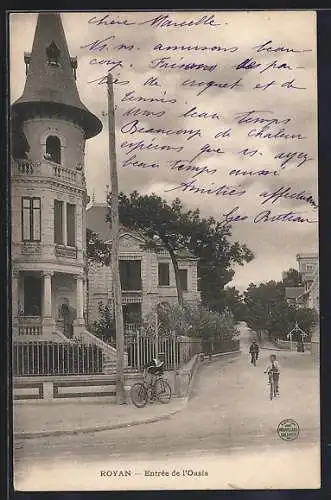 Chère Marcelle.
Ns. ns. amusons beau-
coup. Faisons des par-
ties de croquet et de
tennis.
Ams beau temps
Beaucoup de chaleur
espérons que vs. ayez
beau temps aussi
Amitiés affectueuses
ROYAN — Entrée de l'Oasis